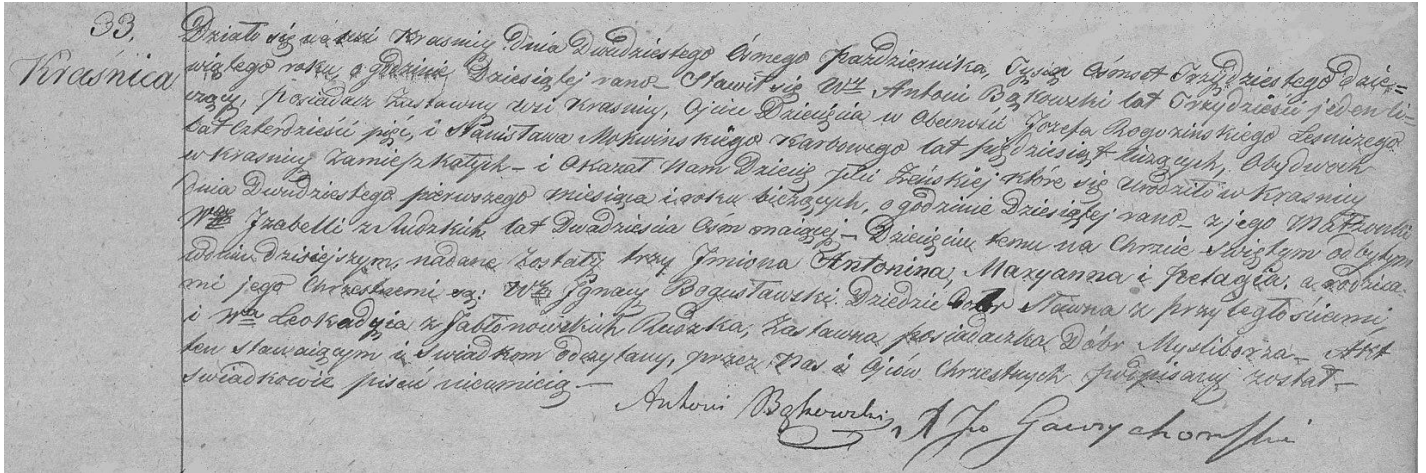 33.
Kraśnica
Działo się na wsi Krasnicy dnia Dwudziestego Osmego Pazdziernika, Tysiąc Osmset Trzydziestego dzie=
wiątego roku, o godzinie Dziesiątej rano – Stawił się Wny Antoni Bąkowski lat Trzydzieści jeden li=
czący, posiadacz Zastawny wsi Krasnicy, Ojciec Dziecięcia w Obecności Jozefa Rogozinskiego Leśniczego
lat Czterdzieści pięć, i Stanisława Karbowego lat pięćdziesiąt liczących, Obydwoch
w Krasnicy zamieszkałych – i Okazał Nam Dziecię płci Żeńskiej które się urodziło w Krasnicy
dnia Dwudziestego pierwszego miesiąca i roku bieżących, o godzinie Dziesiątej rano – z jego Małżonki
Wny Izabelli z Rudzkich lat Dwadzieścia Osm maiącej – Dziecięciu temu na Chrzcie Świętym odbytym
w dniu dzisiejszym, nadane zostały trzy Imiona Antonina, Maryanna i Pelagia, a rodzica=
mi jego Chrzestnemi są: Wny Ignacy Bogusławski Dziedzic Dobr Sławna z przyległościami,
i Wna Leokadyia z Jabłonowskich Rudzka, Zastawna posiadaczka Dóbr Mysliborza – Akt
ten stawaiącym i Swiadkom odczytany, przez Nas i Ojców Chrzestnych podpisany został –
Swiadkowie pisać nieumieią –
Antoni Bąkowski, X Jo Gawrychowski